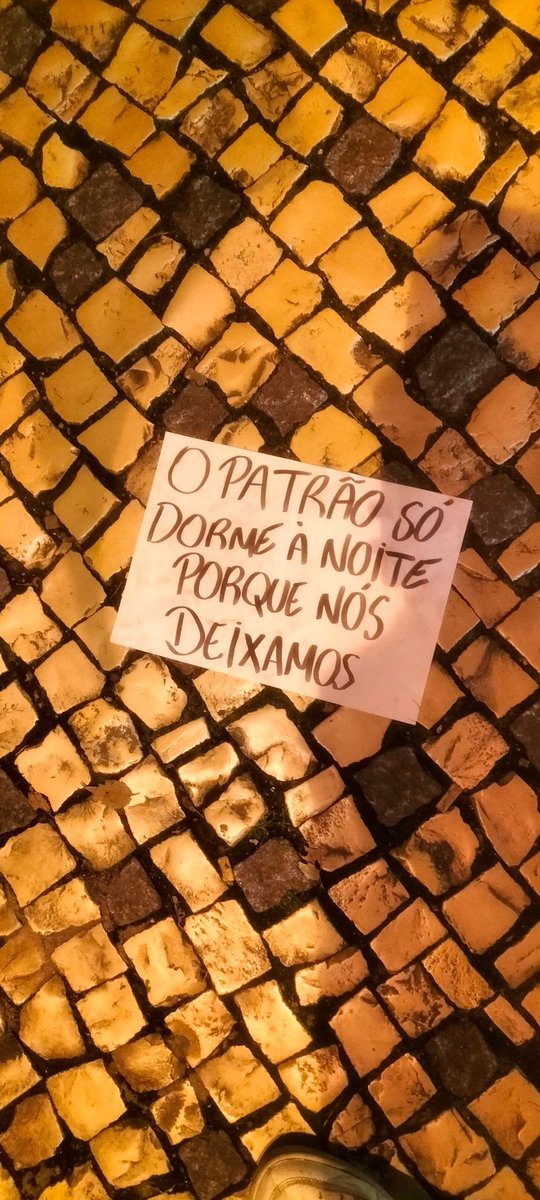 O PATRÃO SÓ
DORME À NOITE
PORQUE NÓS
DEIXAMOS